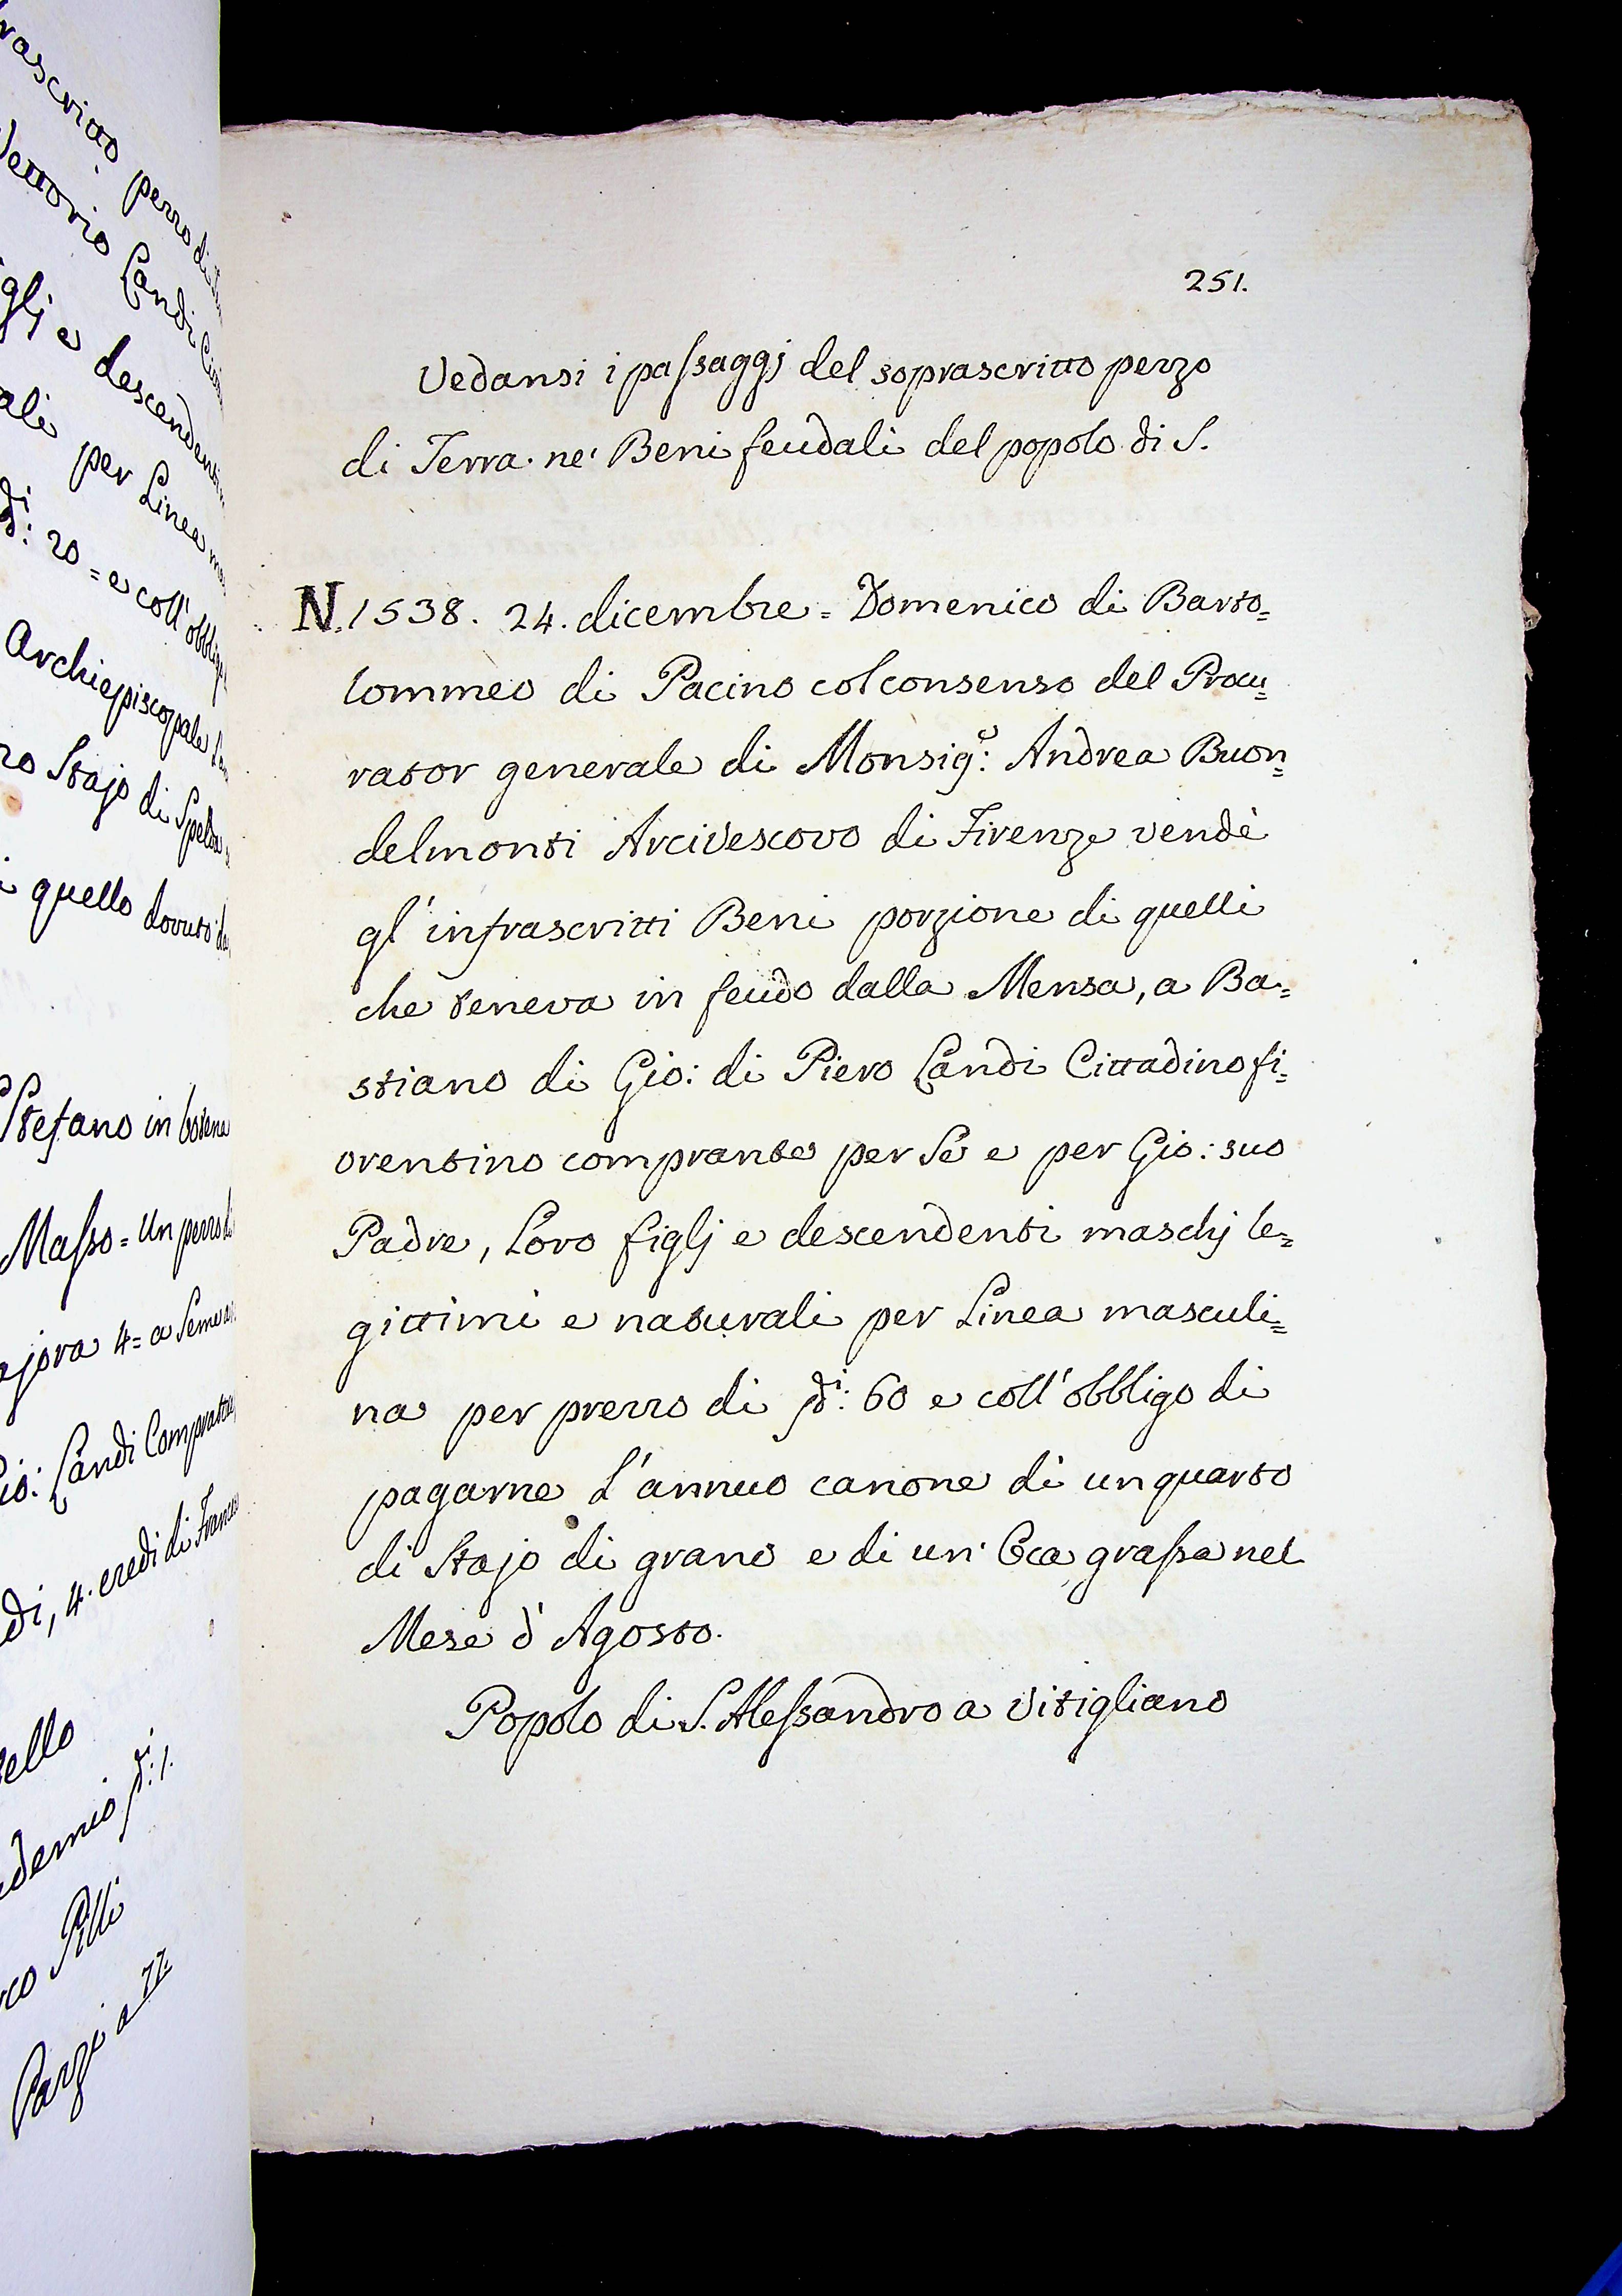 rascritto perzo di
Vettorio Landi
gli e descendenti
ali per Linea
di: 20 = e coll' obbligo
Archiepiscopale
Stajo di Spelda
quello dovuto
Stefano in
Masso = Un pezzo
4 = a Seme
Gio: Landi Compratore
di, 4. eredi di
ello
di: 1.
co Pilli
251.
Vedansi i passaggj del soprascritto pezzo
di Terra ne' Beni feudali del popolo di S.
N. 1538. 24. dicembre = Domenico di Barto=
lommeo di Pacino col consenso del Procu=
rator generale di Monsig.e: Andrea Buon=
delmonti Arcivescovo di Firenze vendè
gl' infrascritti Beni porzione di quelli
che teneva in feudo dalla Mensa, a Ba=
stiano di Gio: di Piero Landi Cittadino fi=
orentino comprante per Se e per Gio: suo
Padre, Loro figlj e descendenti maschj le=
gittimi e naturali per Linea masculi=
na per prezzo di di: 60 e coll' obbligo di
pagarne L' annuo canone di un quarto
di Stajo di grano e di un' Oca grassa nel
Mese d' Agosto.
Popolo di S. Alessandro a Vitigliano